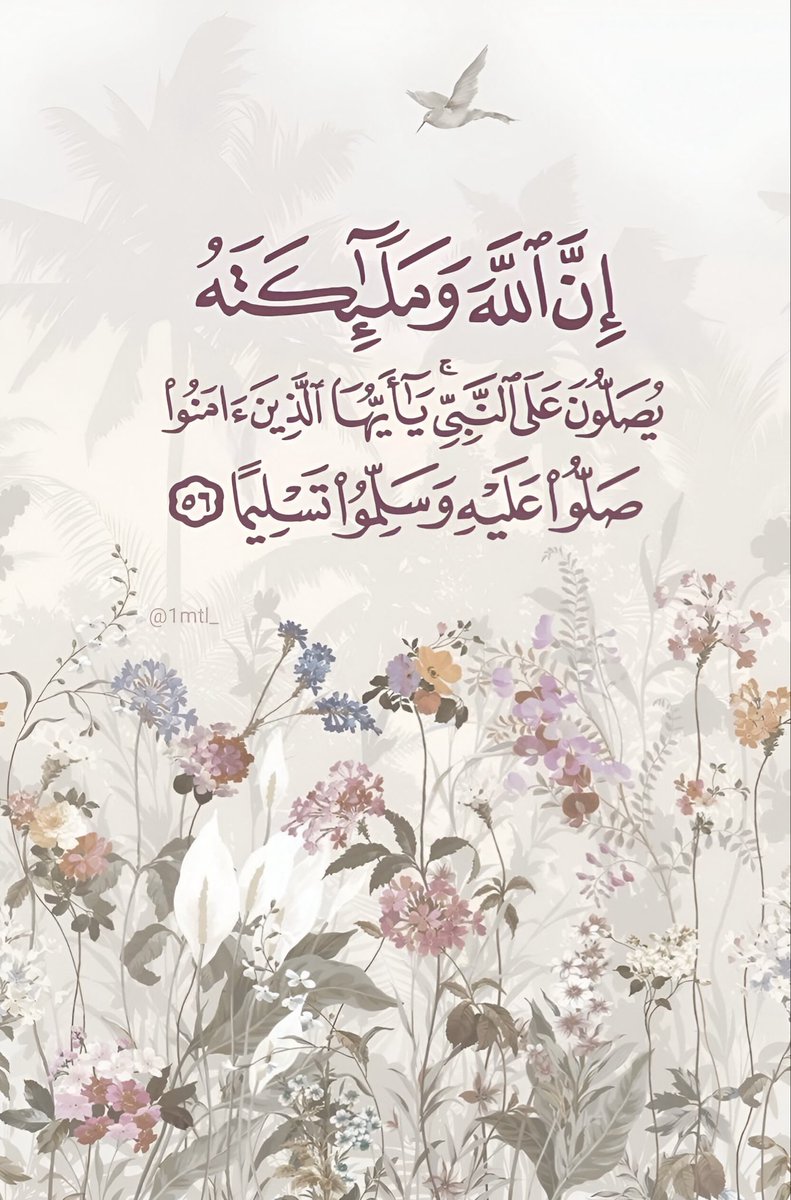 إِنَّ ٱللَّهَ وَمَلَـٰٓئِكَتَهُۥ
يُصَلُّونَ عَلَى ٱلنَّبِىِّ ۚ يَـٰٓأَيُّهَا ٱلَّذِينَ ءَامَنُوا۟
صَلُّوا۟ عَلَيْهِ وَسَلِّمُوا۟ تَسْلِيمًا ٥٦
@1mtl_